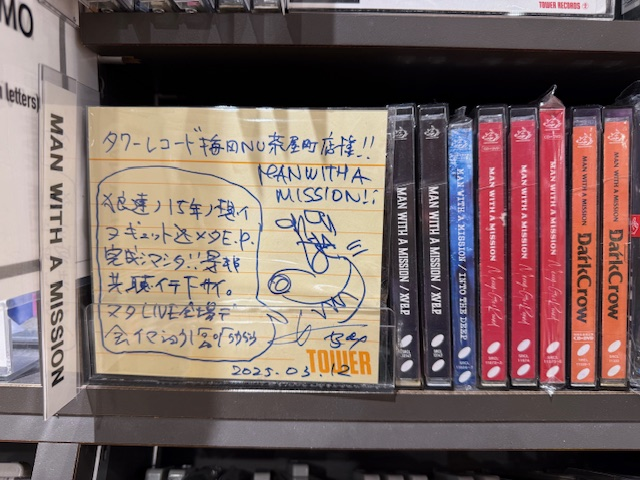 MO
letters)
TOWER RECORDS
MAN WITH A MISSION
タワーレコード梅田NU茶屋町店様!!
MAN WITH A
MISSION!!
狼達ノ15年ノ想イ
ヲギュット込メタE.P.
完成マシタ!!是非
共聴イテ下サイ。
マタLIVE会場デ
会イマショウ!
TOWER
2025.03.12
MAN WITH A MISSION / XV E.P
MAN WITH A MISSION / XV E.P
MAN WITH A MISSION / INTO THE DEEP
MAN WITH A MISSION
MAN WITH A MISSION
MAN WITH A MISSION
MAN WITH A MISSION DarkCrow
MAN WITH A MISSION DarkCrow